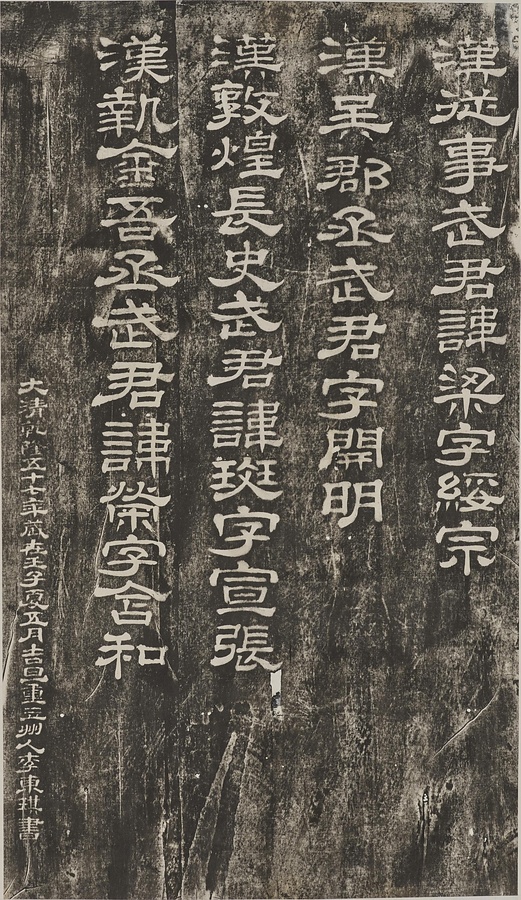 漢從事武君諱梁字綏宗
漢吴郡丞武君字開明
漢敦煌長史武君諱斑字宣張
漢執金吾丞武君諱榮字含和
大清乾隆五十七年歲在壬子夏五月吉旦重立州人李東琪書